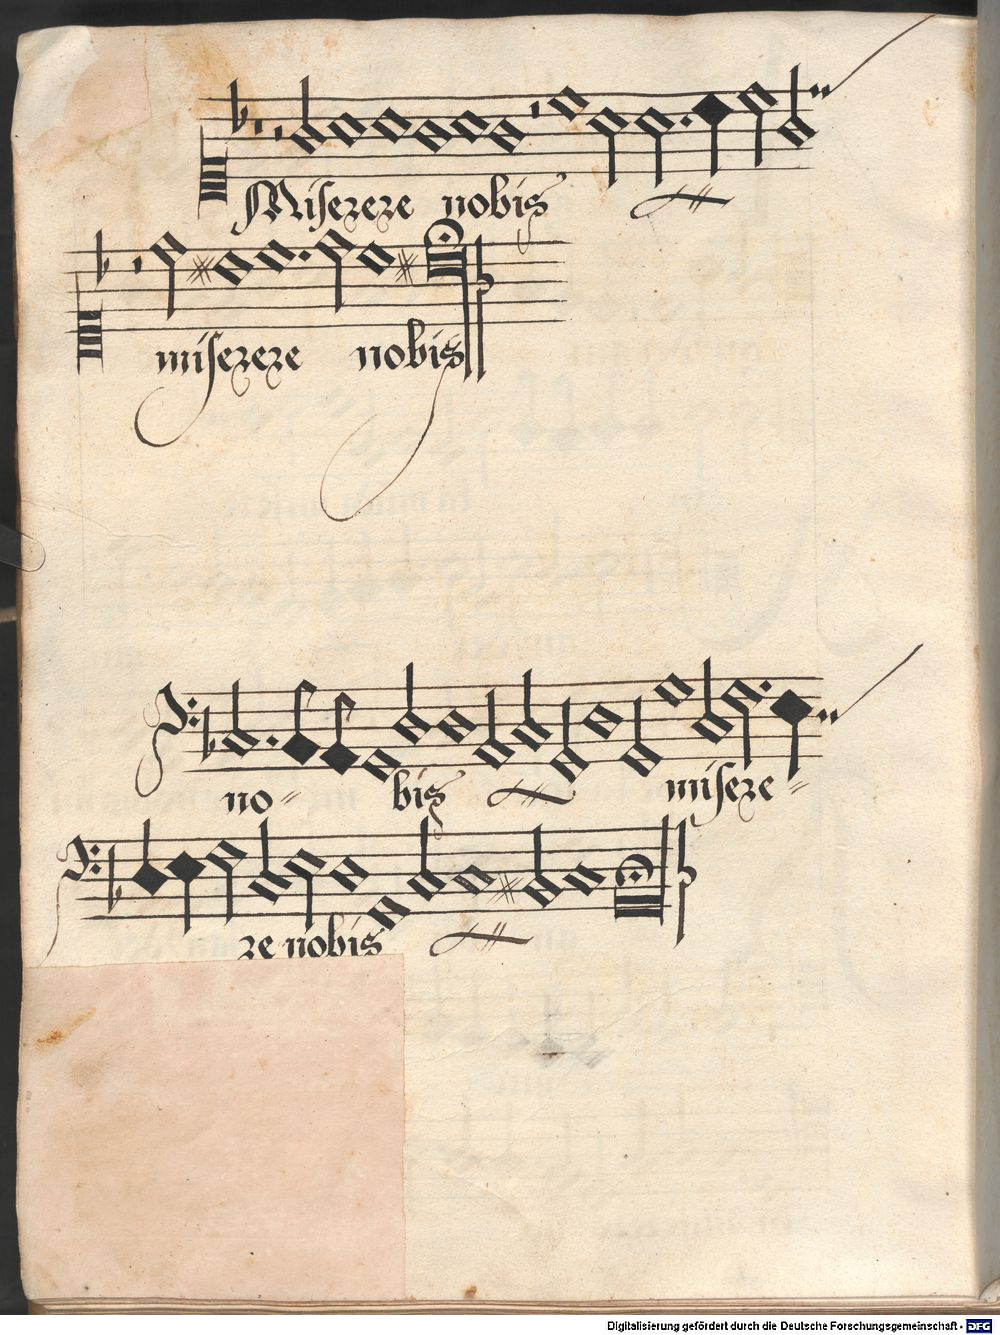 Miserere nobis
miserere nobis
no= bis misere=
re nobis
Digitalisierung gefördert durch die Deutsche Forschungsgemeinschaft - DFG